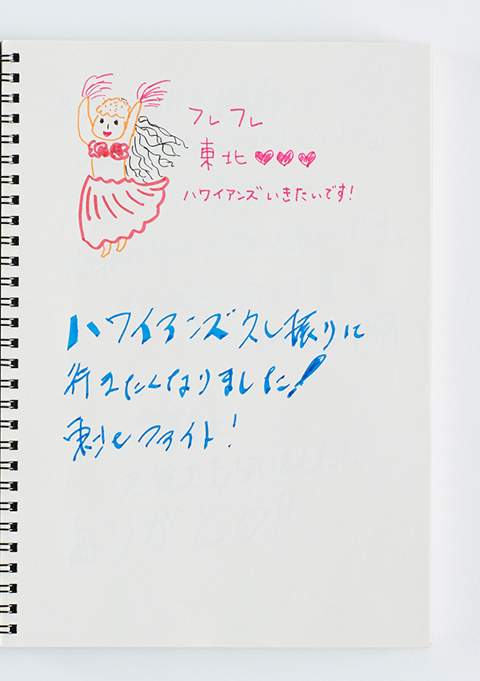 フレフレ
東北♥♥♥
ハワイアンズいきたいです!
ハワイアンズ久し振りに
行きたくなりました!
東北ファイト!
ありがとう!!